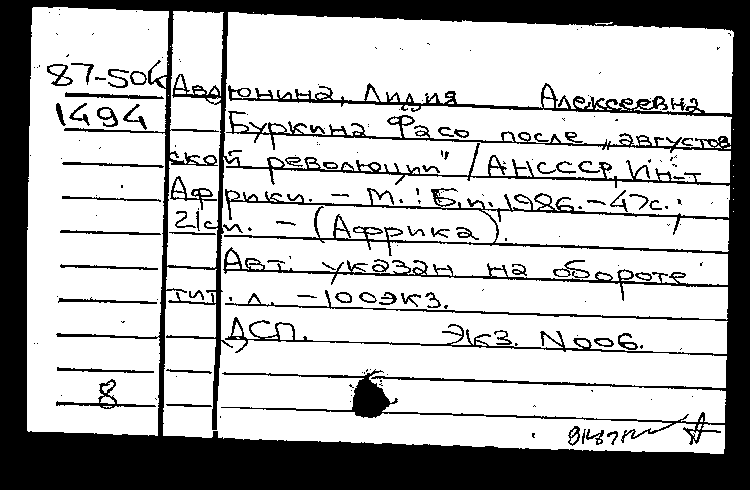 87-50к Авдюнина, Лидия Алексеевна
1494 Буркина Фасо после „августов
ской революции" / АНСССР, Ин-т
Африки. - М.: Б.и., 1986. - 47с.;
21см. - (Африка).
Авт. указан на обороте
тит. л. - 100экз.
ДСП. Экз. N006.
8